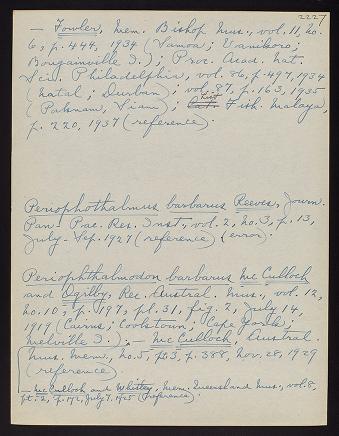 2227
— Fowler, Mem. Bishop Mus., vol. 11, no.
6, p. 444, 1934 (Samoa; Vanikoro;
Bougainville I.); Proc. Acad. Nat.
Sci. Philadelphia, vol. 86, p. 497, 1934
(Natal; Durban); vol. 87, p. 163, 1935
(Paknam, Siam); List Fish. Malaya,
p. 220, 1937 (reference).
Periophothalmus barbarus Reeves, Journ.
Pan-Pac. Res. Inst., vol. 2, no. 3, p. 13,
July-Sep. 1927 (reference) (error).
Periophthalmodon barbarus McCulloch
and Ogilby, Rec. Austral. Mus., vol. 12,
no. 10, p. 197, pl. 31, fig. 2, July 14,
1919 (Cairns; Cookstown; Cape York;
Melville I.). — McCulloch, Austral.
Mus. Mem., no. 5, pt. 3, p. 388, Nov. 28, 1929
(reference).
— McCulloch and Whitley, Mem. Queensland Mus., vol. 8,
pt. 2, p. 172, July 7, 1925 (reference).